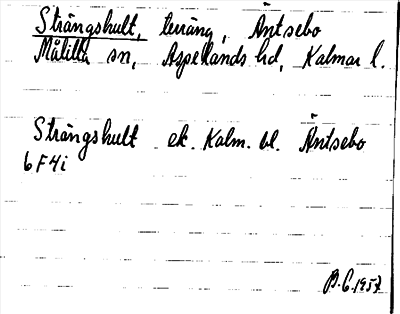 Strängshult, terräng, Äntsebo
Målilla sn, Aspelands hd, Kalmar l.
Strängshult ek. Kalm. bl. Äntsebo
6 F 4 i
B.G. 1957